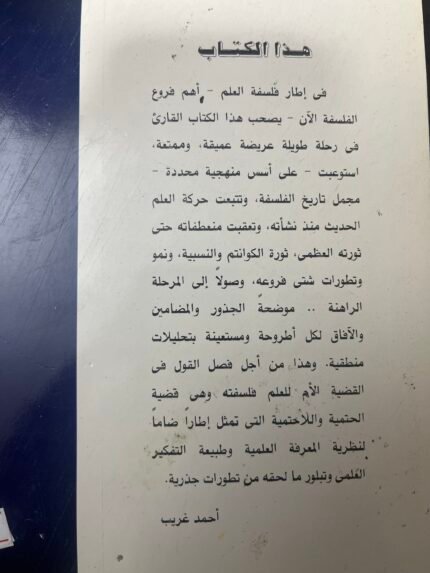 هذا الكتاب
فى إطار فلسفة العلم - أهم فروع
الفلسفة الآن - يصحب هذا الكتاب القارئ
فى رحلة طويلة عريضة عميقة، وممتعة،
استوعبت - على أسس منهجية محددة -
مجمل تاريخ الفلسفة، وتتبعت حركة العلم
الحديث منذ نشأته، وتعقبت منعطفاته حتى
ثورته العظمى، ثورة الكوانتم والنسبية، ونمو
وتطورات شتى فروعه، وصولاً إلى المرحلة
الراهنة .. موضحةً الجذور والمضامين
والآفاق لكل أطروحة ومستعينة بتحليلات
منطقية. وهذا من أجل فصل القول فى
القضية الأم للعلم فلسفته وهى قضية
الحتمية واللاحتمية التى تمثل إطاراً ضاماً
لنظرية المعرفة العلمية وطبيعة التفكير
العلمى وتبلور ما لحقه من تطورات جذرية.
أحمد غريب